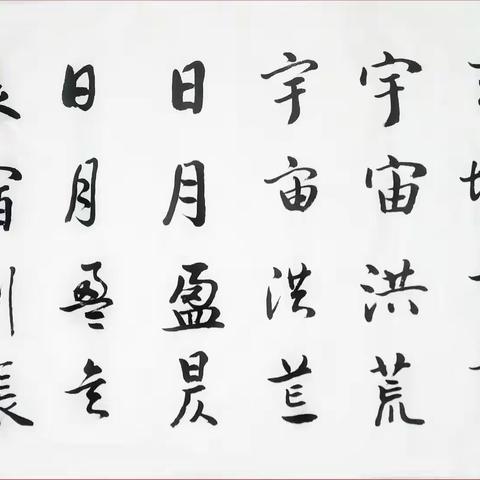 宇宙洪荒
宇宙洪荒
日月盈昃
日月盈昃